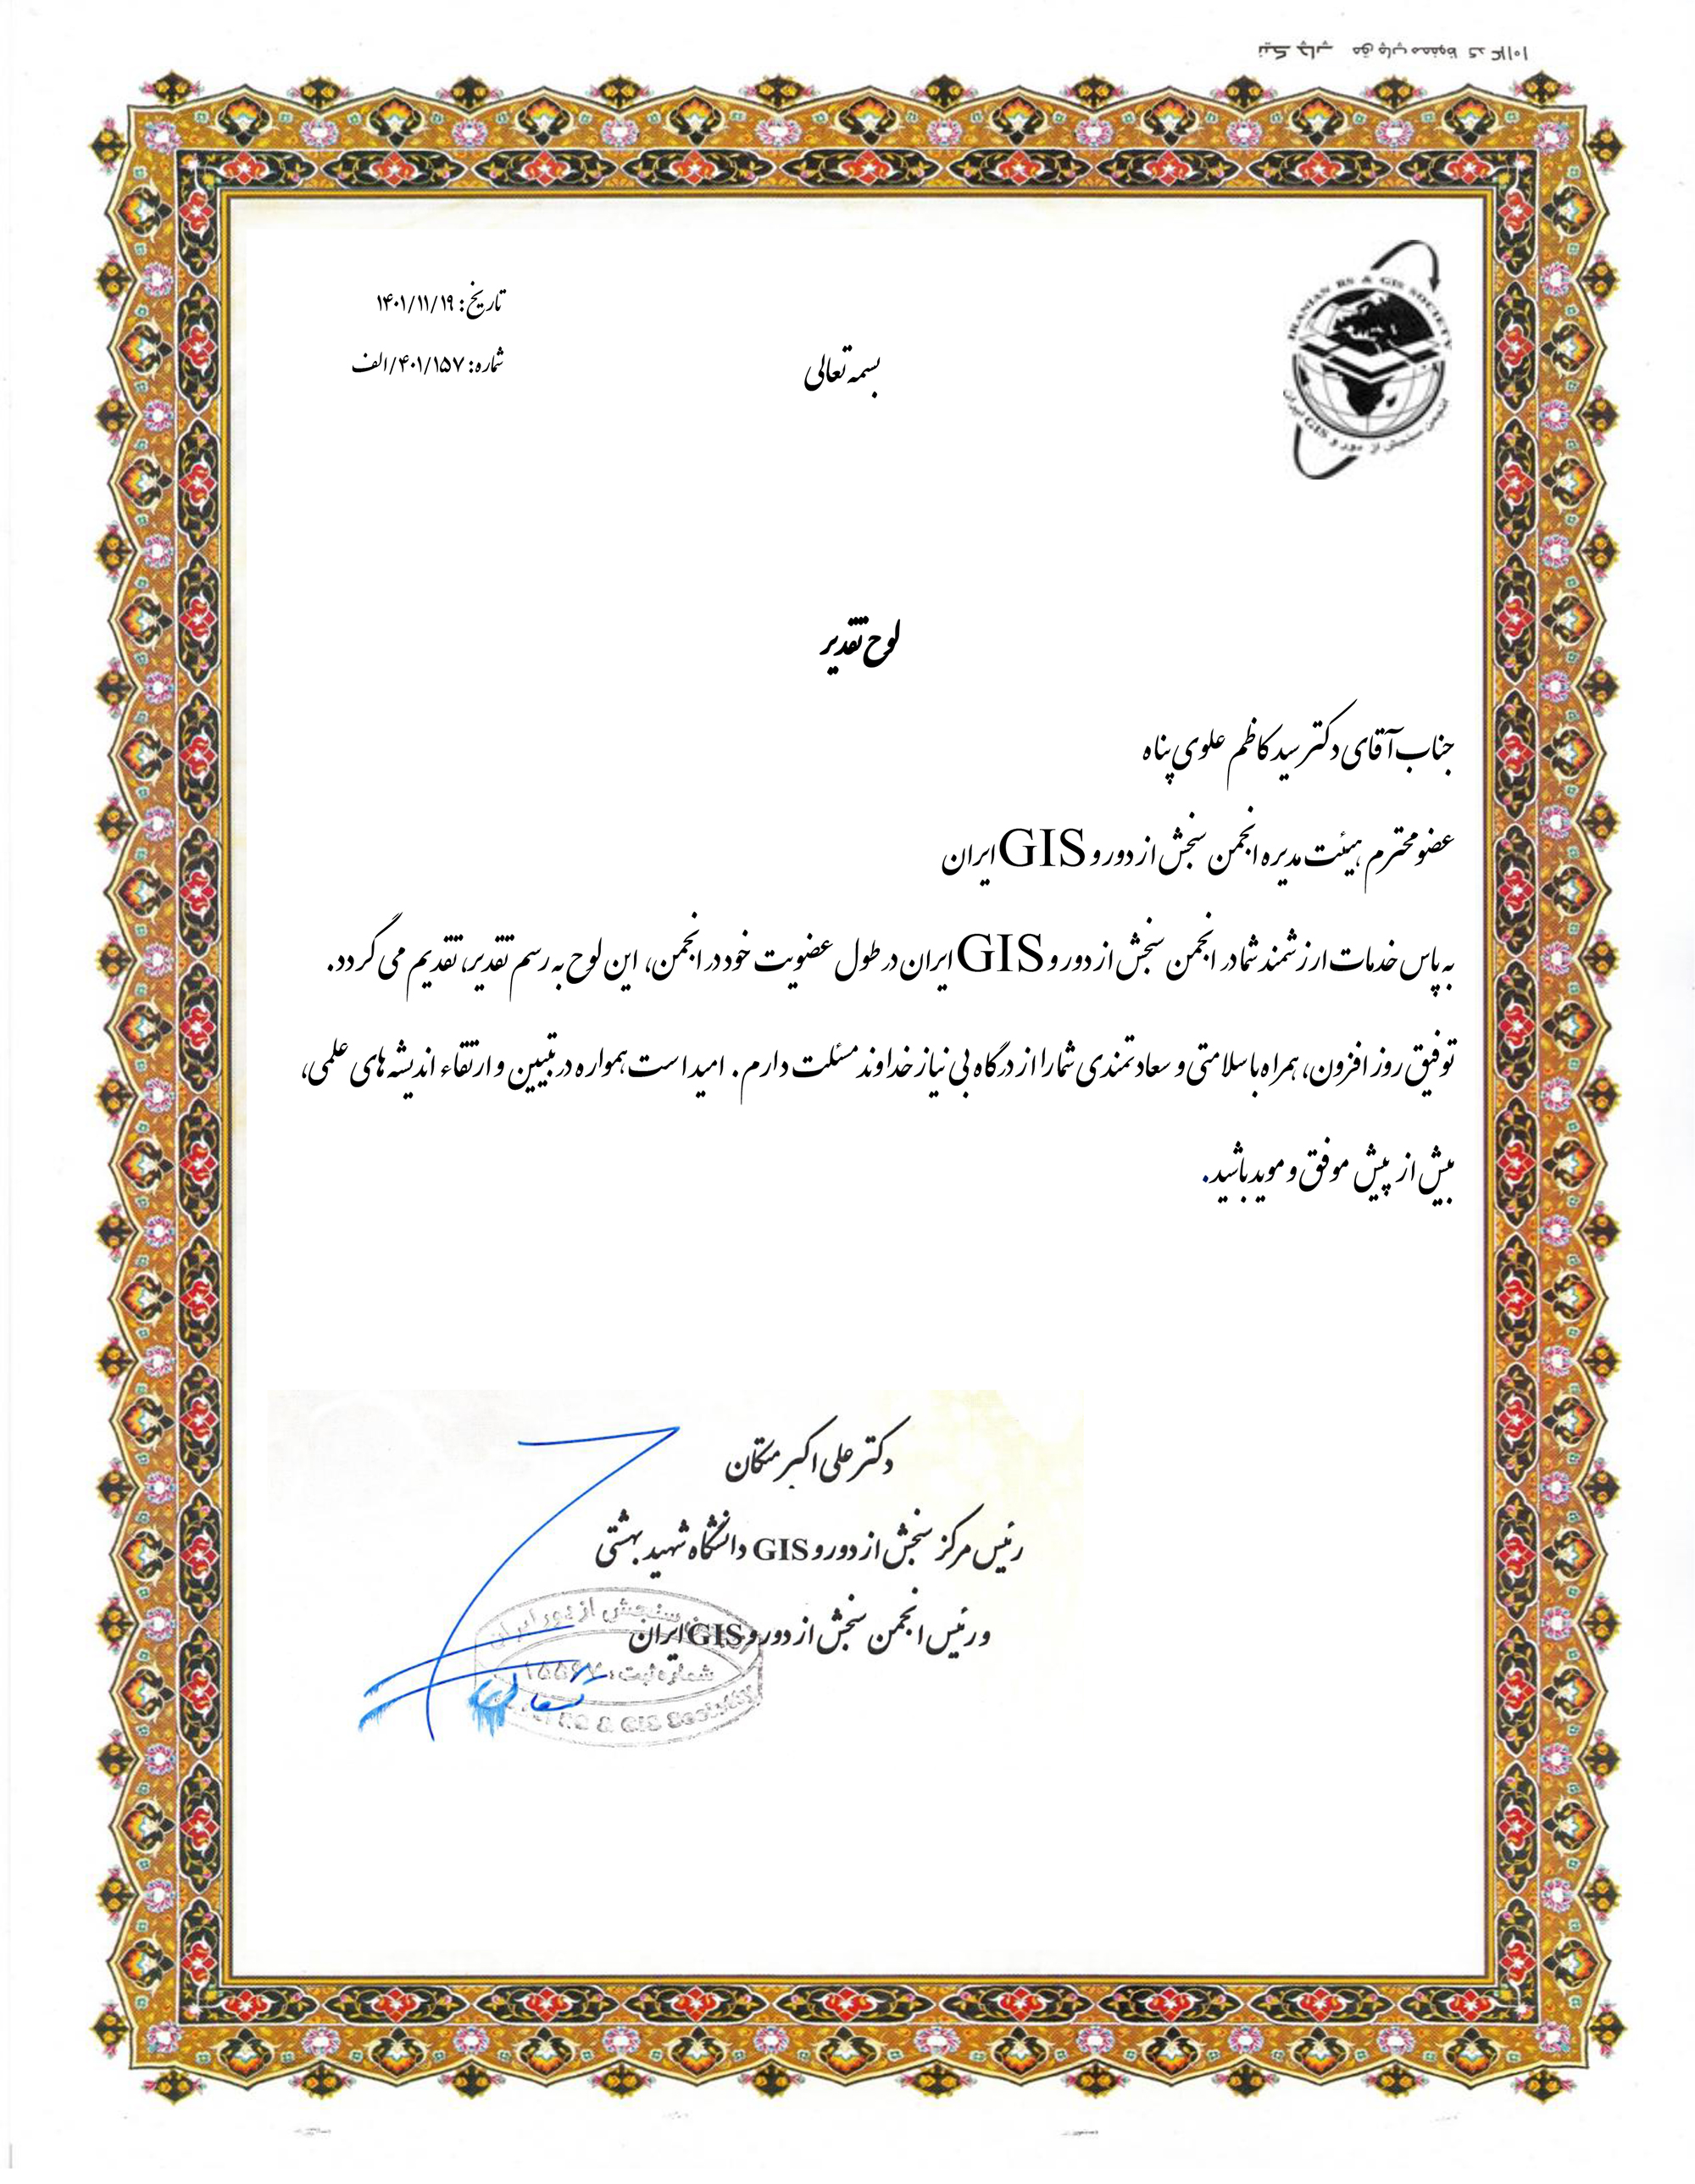 تاریخ: ۱۴۰۱/۱۱/۱۹
شماره: ۴۰۱/۱۵۷/الف
IRANIAN RS & GIS SOCIETY
انجمن سنجش از دور و GIS ایران
بسمه تعالی
لوح تقدیر
جناب آقای دکتر سید کاظم علوی پناه
عضو محترم هیئت مدیره انجمن سنجش از دور و GIS ایران
به پاس خدمات ارزشمند شما در انجمن سنجش از دور و GIS ایران در طول عضویت خود در انجمن، این لوح به رسم تقدیر، تقدیم می گردد.
توفیق روز افزون، همراه با سلامتی و سعادتمندی شما را از درگاه بی نیاز خداوند مسئلت دارم. امید است همواره در تبیین و ارتقاء اندیشه های علمی،
بیش از پیش موفق و موید باشید.
دکتر علی اکبر متکان
رئیس مرکز سنجش از دور و GIS دانشگاه شهید بهشتی
و رئیس انجمن سنجش از دور و GIS ایران
سنجش از دور ایران
شماره ثبت:
RS & GIS Society